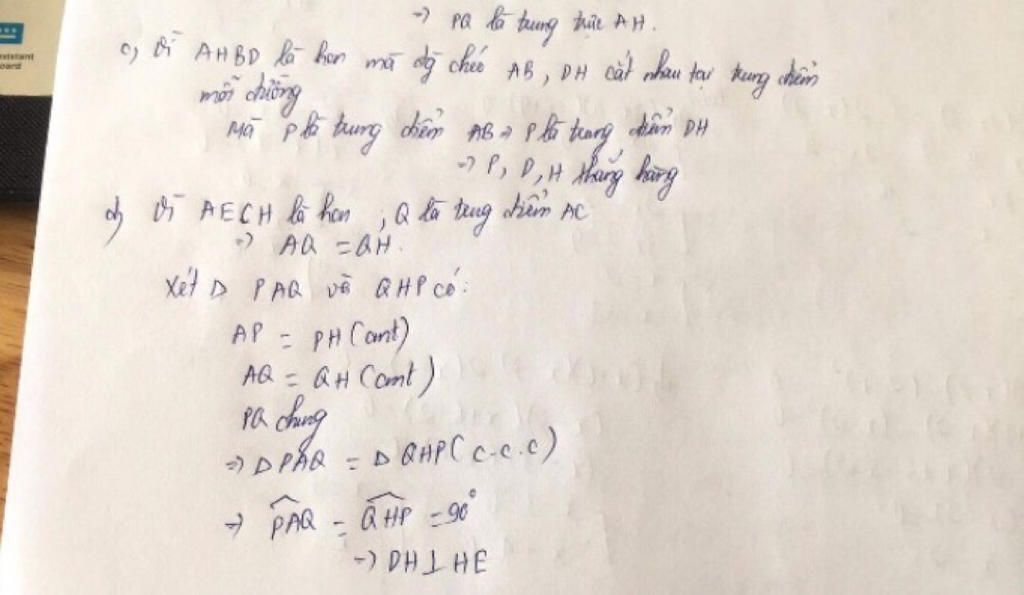 => PQ là trung trực AH.
c, Vì AHBD là hcn mà đg chéo AB, DH cắt nhau tại trung điểm
mỗi đường
Mà P là trung điểm AB => P là trung điểm DH
=> P, D, H thẳng hàng
d, Vì AECH là hcn ; Q là trung điểm AC
=> AQ = QH.
Xét Δ PAQ và QHP có:
AP = PH (cmt)
AQ = QH (cmt)
PQ chung
=> Δ PAQ = Δ QHP (c.c.c)
=> \widehat{PAQ} = \widehat{QHP} = 90°
=> DH ⊥ HE